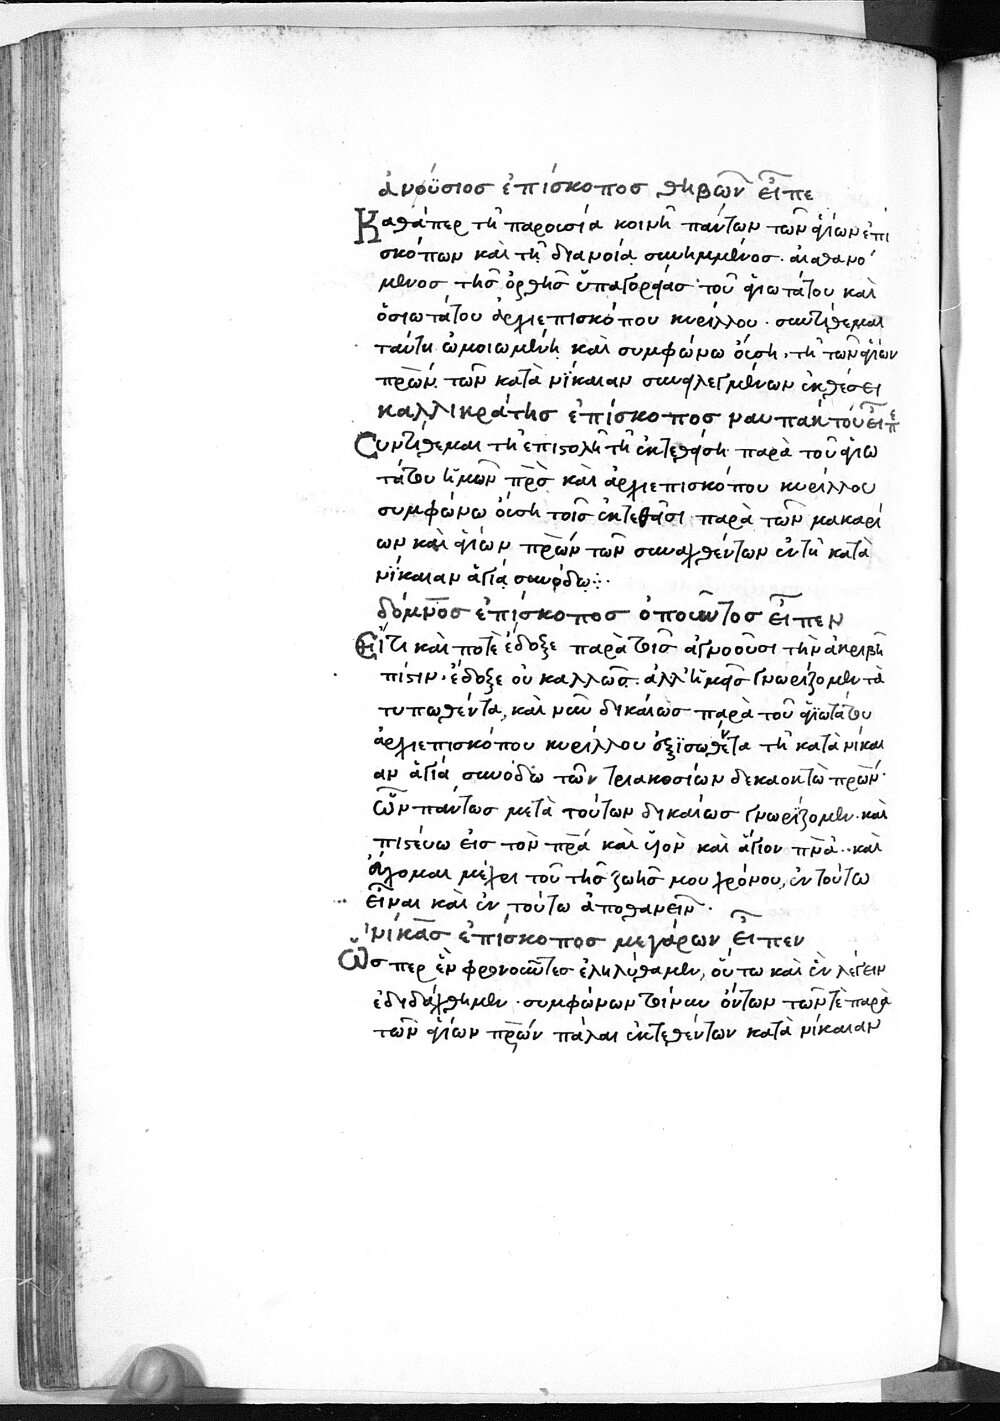 ἀνούσιος ἐπίσκοπος θηβῶν εἶπε
Καθάπερ τῆ παρουσία κοινῆ πάντων τῶν ἁγίων ἐπι
σκόπων καὶ τῆ διανοία συνημμένος· αἰσθανό
μενος τῆς ὀρθῆς ὑπαγορίας τοῦ ἁγιωτάτου καὶ
ὁσιωτάτου ἀρχιεπισκόπου κυρίλλου· συντίθεμαι
ταύτη ὡμοιωμένη καὶ συμφώνω οὔση· τῆ τῶν ἁγίων
πρων τῶν κατὰ νίκαιαν συνειλεγμένων ἐκθέσει
καλλικράτης ἐπίσκοπος ναυπάκτου εἶπε
Συντίθεμαι τῆ ἐπιστολῆ τῆ ἐκτεθείση παρὰ τοῦ ἁγιω
τάτου ἡμῶν πρς καὶ ἀρχιεπισκόπου κυρίλλου
συμφώνω οὔση τοῖς ἐκτεθεῖσι παρὰ τῶν μακαρί
ων καὶ ἁγίων πρων τῶν συναχθέντων ἐν τῆ κατὰ
νίκαιαν ἁγία συνόδω:·
δόμνος ἐπίσκοπος ὀποῦντος εἶπεν
Εἴ τι καὶ ποτὲ ἔδοξε παρὰ τοῖς ἀγνοοῦσι τὴν ἀκριβῆ
πίστιν· ἔδοξε οὐ καλῶς· ἀλλ' ἡμεῖς γνωρίζομεν τὰ
τυπωθέντα, καὶ νῦν δικαίως παρὰ τοῦ ἁγιωτάτου
ἀρχιεπισκόπου κυρίλλου ἐξϊσωθέντα τῆ κατὰ νίκαι
αν ἁγία συνόδω τῶν τριακοσίων δεκαοκτὼ πρων·
ὧν πάντως μετὰ τούτων δικαίως γνωρίζομεν· καὶ
πιστεύω εἰς τὸν πρα καὶ υἱὸν καὶ ἅγιον πνα·· καὶ
εὔχομαι μέχρι τοῦ τῆς ζωῆς μου χρόνου, ἐν τούτω
εἶναι καὶ ἐν τούτω ἀποθανεῖν·
νίκιας ἐπίσκοπος μεγάρων εἶπεν
Ὥσπερ ἓν φρονοῦντες ἐληλύθαμεν, οὕτω καὶ ἓν λέγειν
ἐδιδάχθημεν· συμφώνων τοίνυν ὄντων τῶν τὲ παρὰ
τῶν ἁγίων πρων πάλαι ἐκτεθέντων κατὰ νίκαιαν